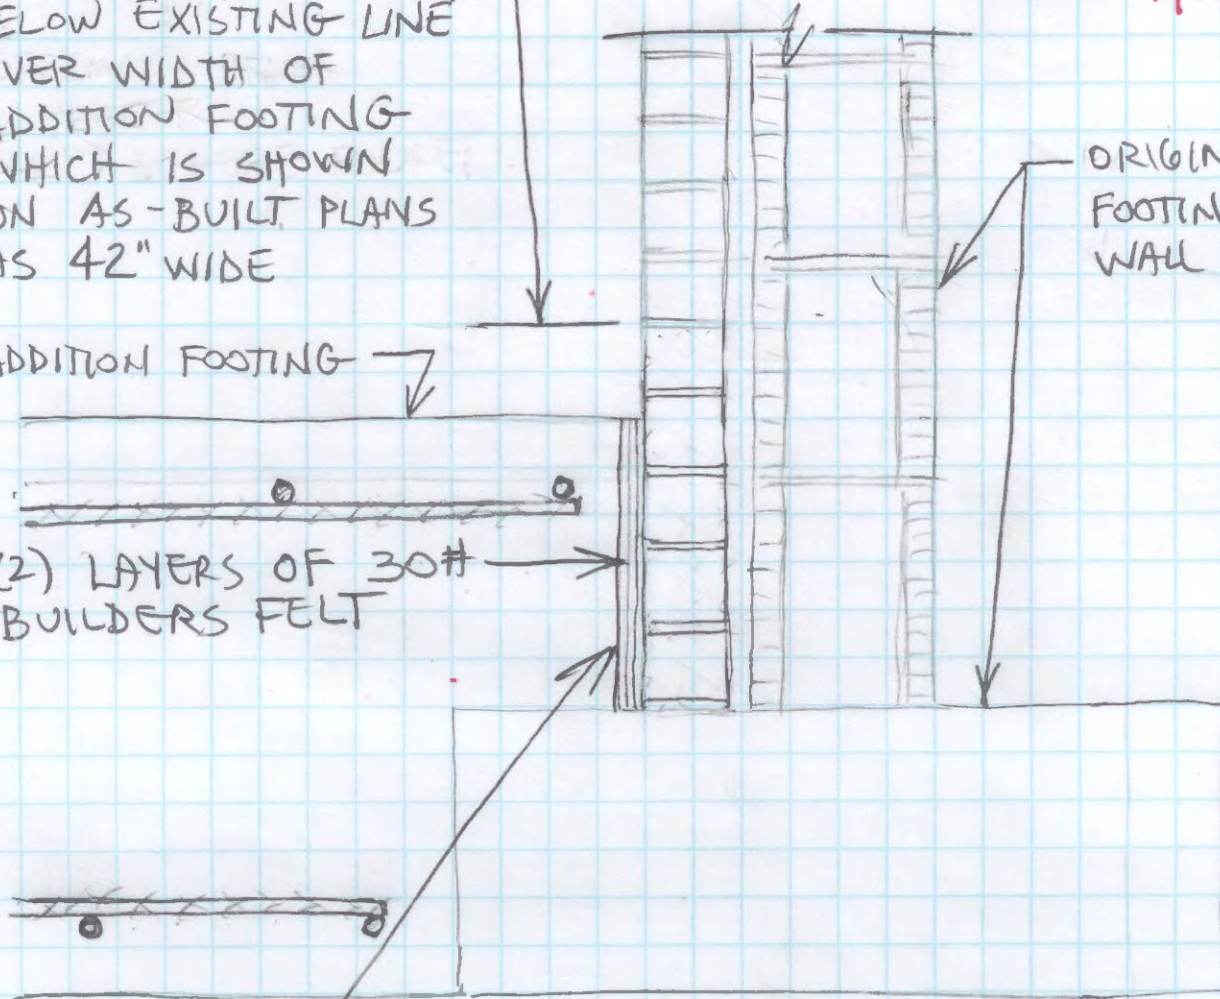 ELOW EXISTING LINE
VER WIDTH OF
ADDITION FOOTING
WHICH IS SHOWN
ON AS-BUILT PLANS
AS 42" WIDE
ADDITION FOOTING
(2) LAYERS OF 30#
BUILDERS FELT
ORIGIN
FOOTIN
WALL